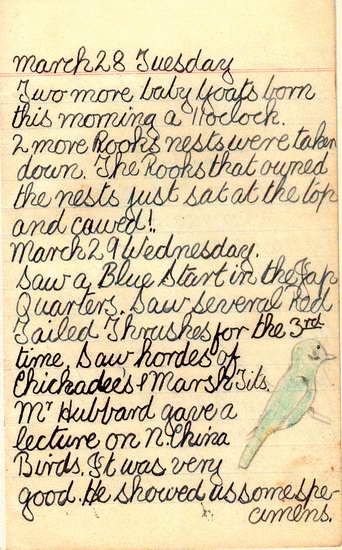 march 28 Tuesday
Two more baby goats born
this morning a 11oclock.
2 more Rooks nests were taken
down. The Rooks that owned
the nests just sat at the top
and cawed!.
March 29 Wednesday.
Saw a Blue Start in the Jap
Quarters. Saw several Red
Tailed Thrushes for the 3rd
time. Saw hordes of
Chickadees & Marsh Tits.
Mr Hubbard gave a
lecture on N. China
Birds. It was very
good. He showed us some spe-
cimens.